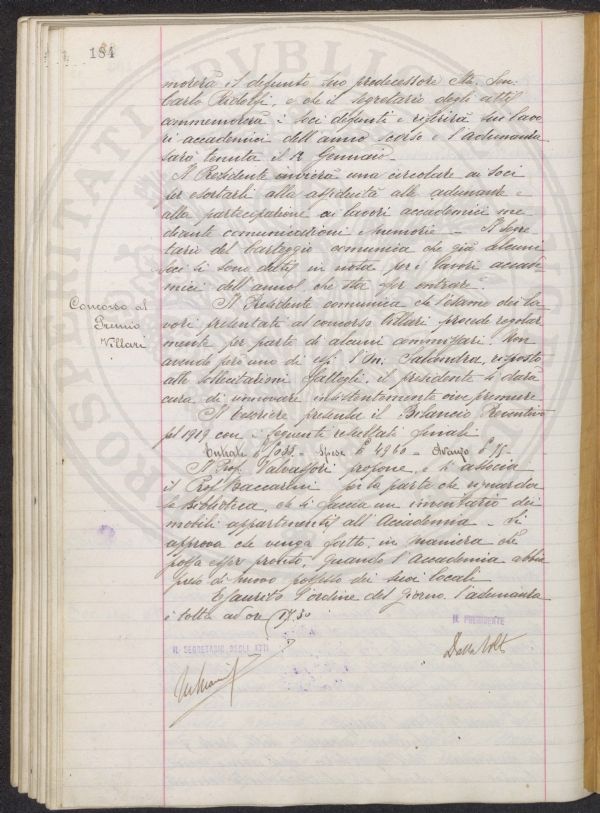 184
morerà il defunto suo predecessore M. Sen.
Carlo Ridolfi, e che il segretario degli atti
commemorerà i soci defunti e riferirà sui lavo
ri accademici dell'anno scorso e l'adunanza
sarà tenuta il 12 Gennaio.
Il Presidente invierà una circolare ai soci
per esortarli alla assiduità alle adunanze e
alla partecipazione ai lavori accademici me
diante comunicazioni e memorie. - Il Segre
tario del Carteggio comunica che già alcuni
soci si sono dati in nota per i lavori accade
mici dell'anno che sta per entrare.
Concorso al
Premio
Villari
Il Presidente comunica che l'esame dei la
vori presentati al concorso Villari procede regolar
mente per parte di alcuni commissari. Non
avendo però uno di essi l'On. Salandra, risposto
alle sollecitazioni fattegli, il presidente si darà
cura di rinnovare insistentemente premure.
Il Tesoriere presenta il Bilancio Preventivo
pel 1919 con i seguenti resultati finali
Entrate £ - Spese £ 4960 - Avanzo £ 75 -
Il Prof. Valvassori propone, e si associa
il Prof. Baccarini per la parte che riguarda
la Biblioteca, che si faccia un inventario dei
mobili appartenenti all'Accademia. - Si
approva che venga fatto, in maniera che
possa esser pronto, quando l'Accademia abbia
preso di nuovo possesso dei suoi locali.
Esaurito l'ordine del giorno, l'adunanza
è tolta ad ore 17.30
IL PRESIDENTE
IL SEGRETARIO DEGLI ATTI